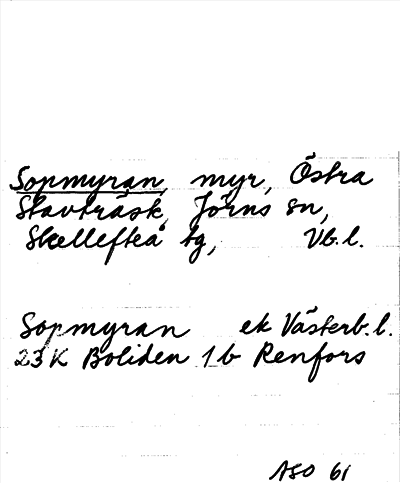 Sopmyran, myr, Östra
Stavträsk, Jörns sn,
Skellefteå tg, Vb.l.
Sopmyran ek Västerb.l.
23K Boliden 1b Renfors
ASO 61